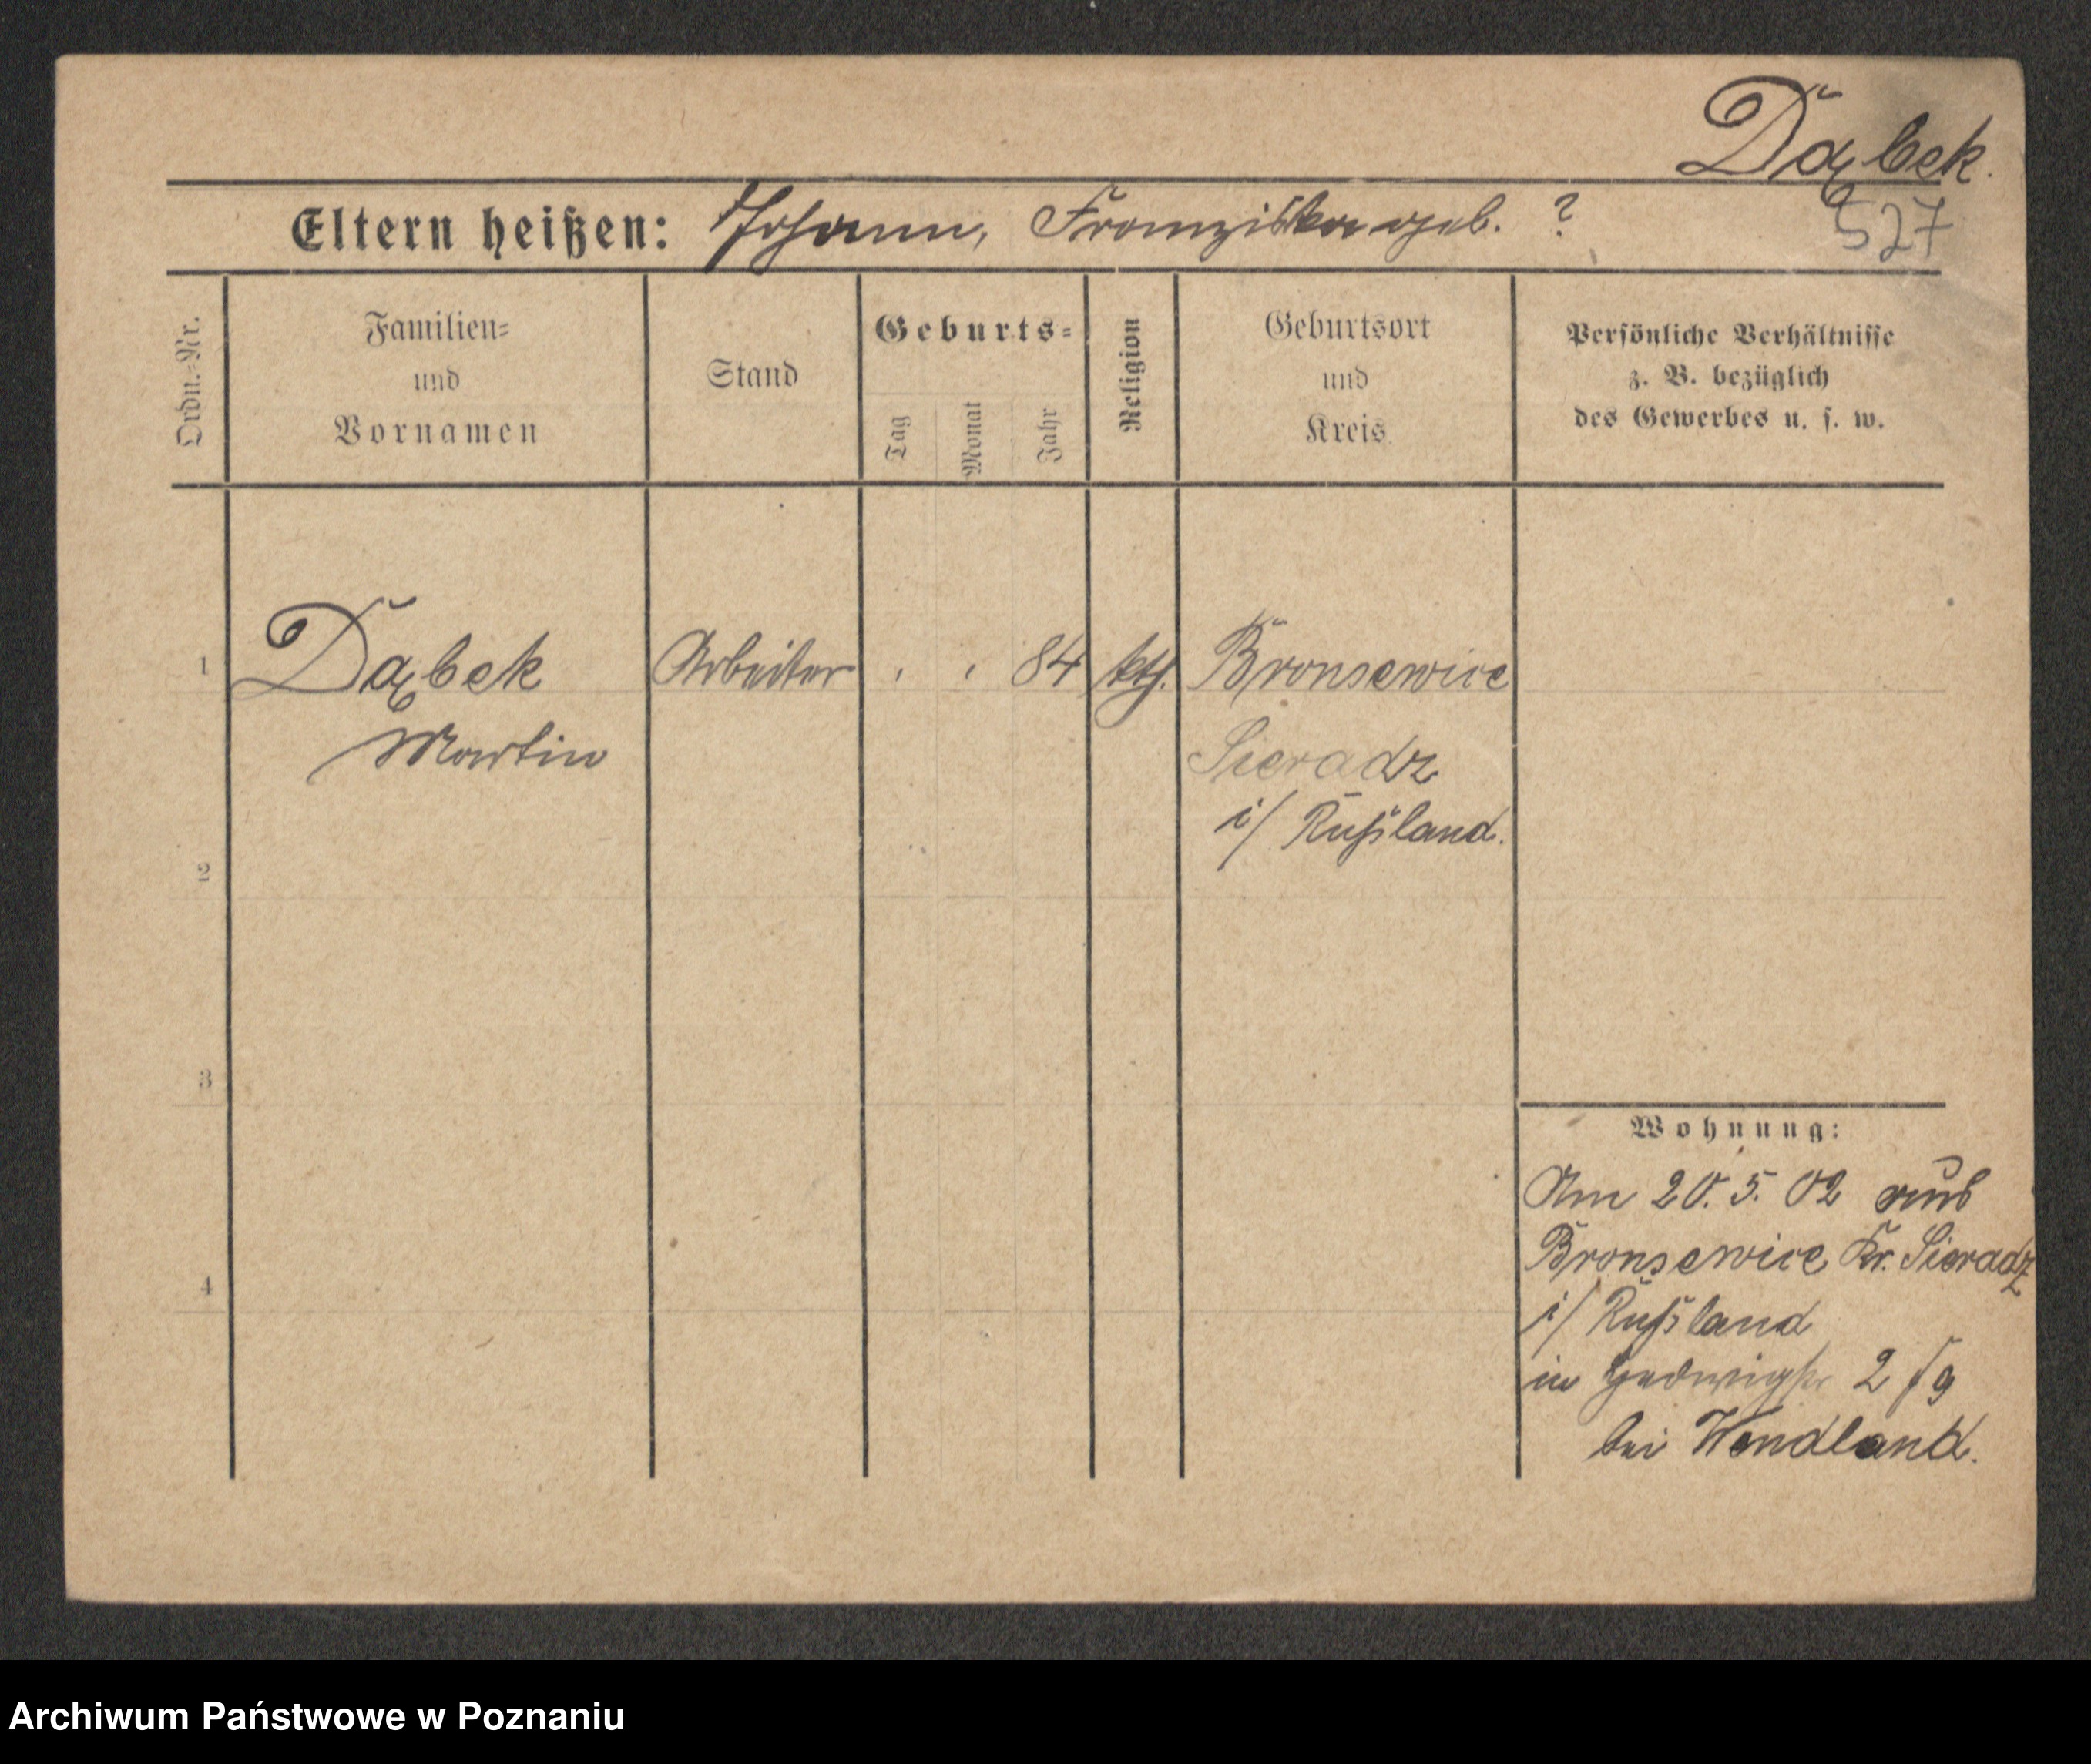 Dąbek.
Eltern heißen: Johann, Franziska geb. ?
527
Ordn.-Nr.
Familien-
und
Vornamen
Stand
Geburts-
Tag
Monat
Jahr
Religion
Geburtsort
und
Kreis
Persönliche Verhältnisse
z. B. bezüglich
des Gewerbes u. s. w.
1 Dąbek Arbeiter . . 84 kth. Bronsewice
Martin Sieradz
i/ Rußland.
2
3
Wohnung:
Am 20. 5. 02 aus
Bronsewice Kr. Sieradz
4
i/ Rußland
in Hedwigstr 2
bei Wendland.
Archiwum Państwowe w Poznaniu